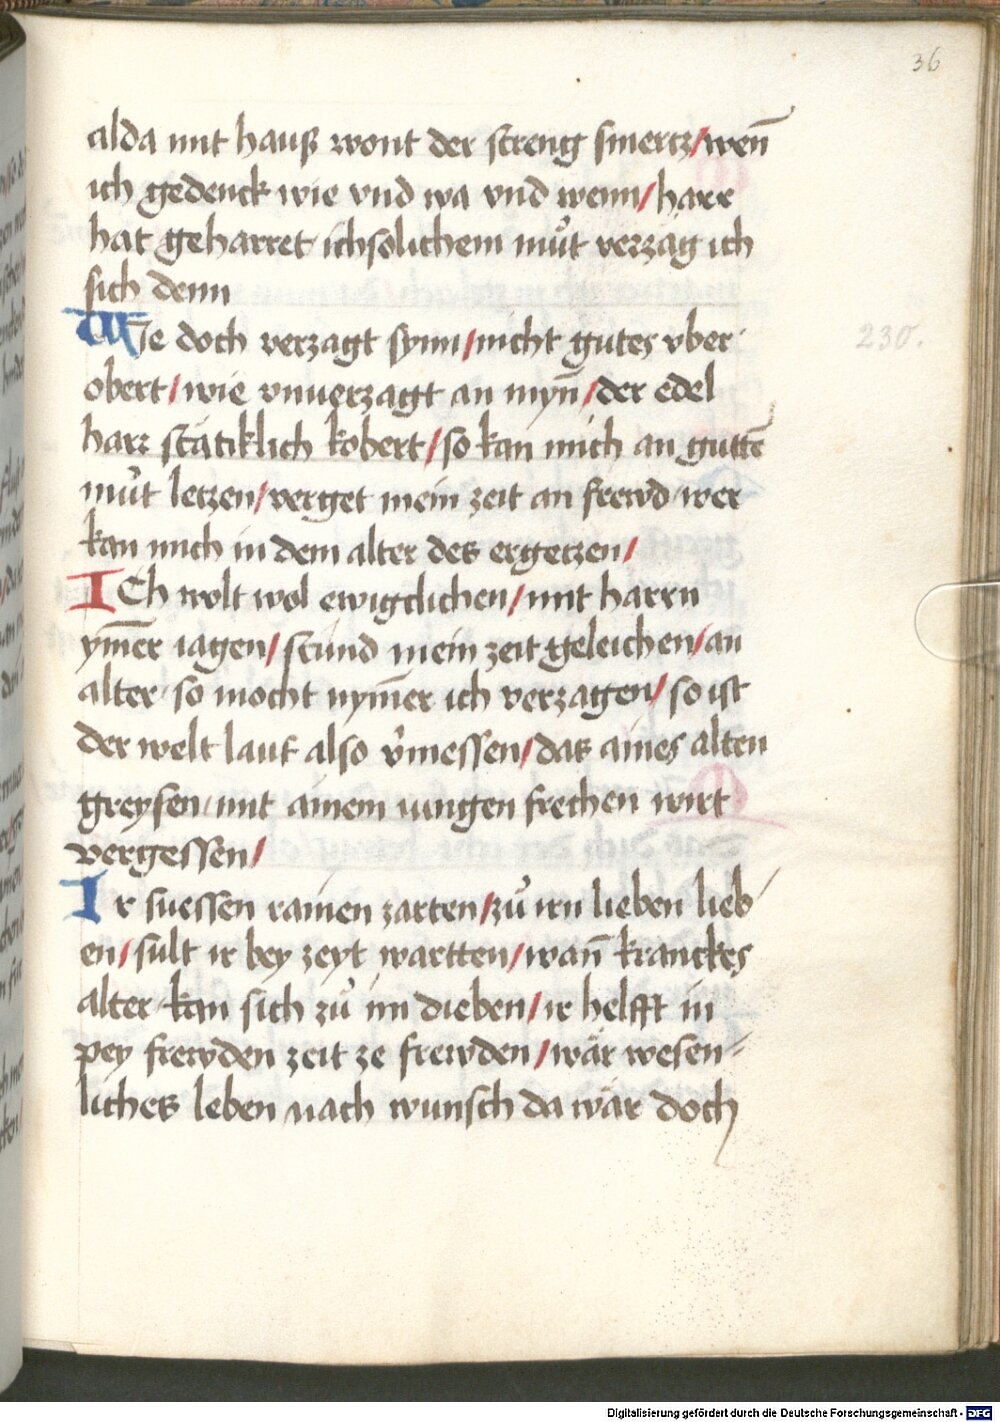 36
alda mit hauß wont der streng smertz/wen̄
ich gedenck wie vnd wa vnd wenn/harr
hat geharret ichsolichem můt verzag ich
sich denn
We doch verzagt synn/nicht gutes vber
230.
obert/wie vnuerzagt an myn̄/der edel
harr stätiklich kobert/so kan mich an guttē
můt letzen/verget mein zeit an frewd wer
kan mich in dem alter des ergetzen/
ICh wolt wol ewigclichen/mit harrn
ym̄er iagen/stünd mein zeit geleichen/an
alter so mocht nym̄er ich verzagen/so ist
der welt lauf also v̓messen/das aines alten
greysen mit ainem iungen frechen wirt
vergessen/
Ir suessen rainen zarten/zů irn lieben lieb
en/sult ir bey zeyt wartten/wan̄ kranckes
alter kan sich zů im dieben/ir helfft in
pey frewden zeit ze frewden/wär wesen-
liches leben nach wunsch da wär doch
Digitalisierung gefördert durch die Deutsche Forschungsgemeinschaft - DFG